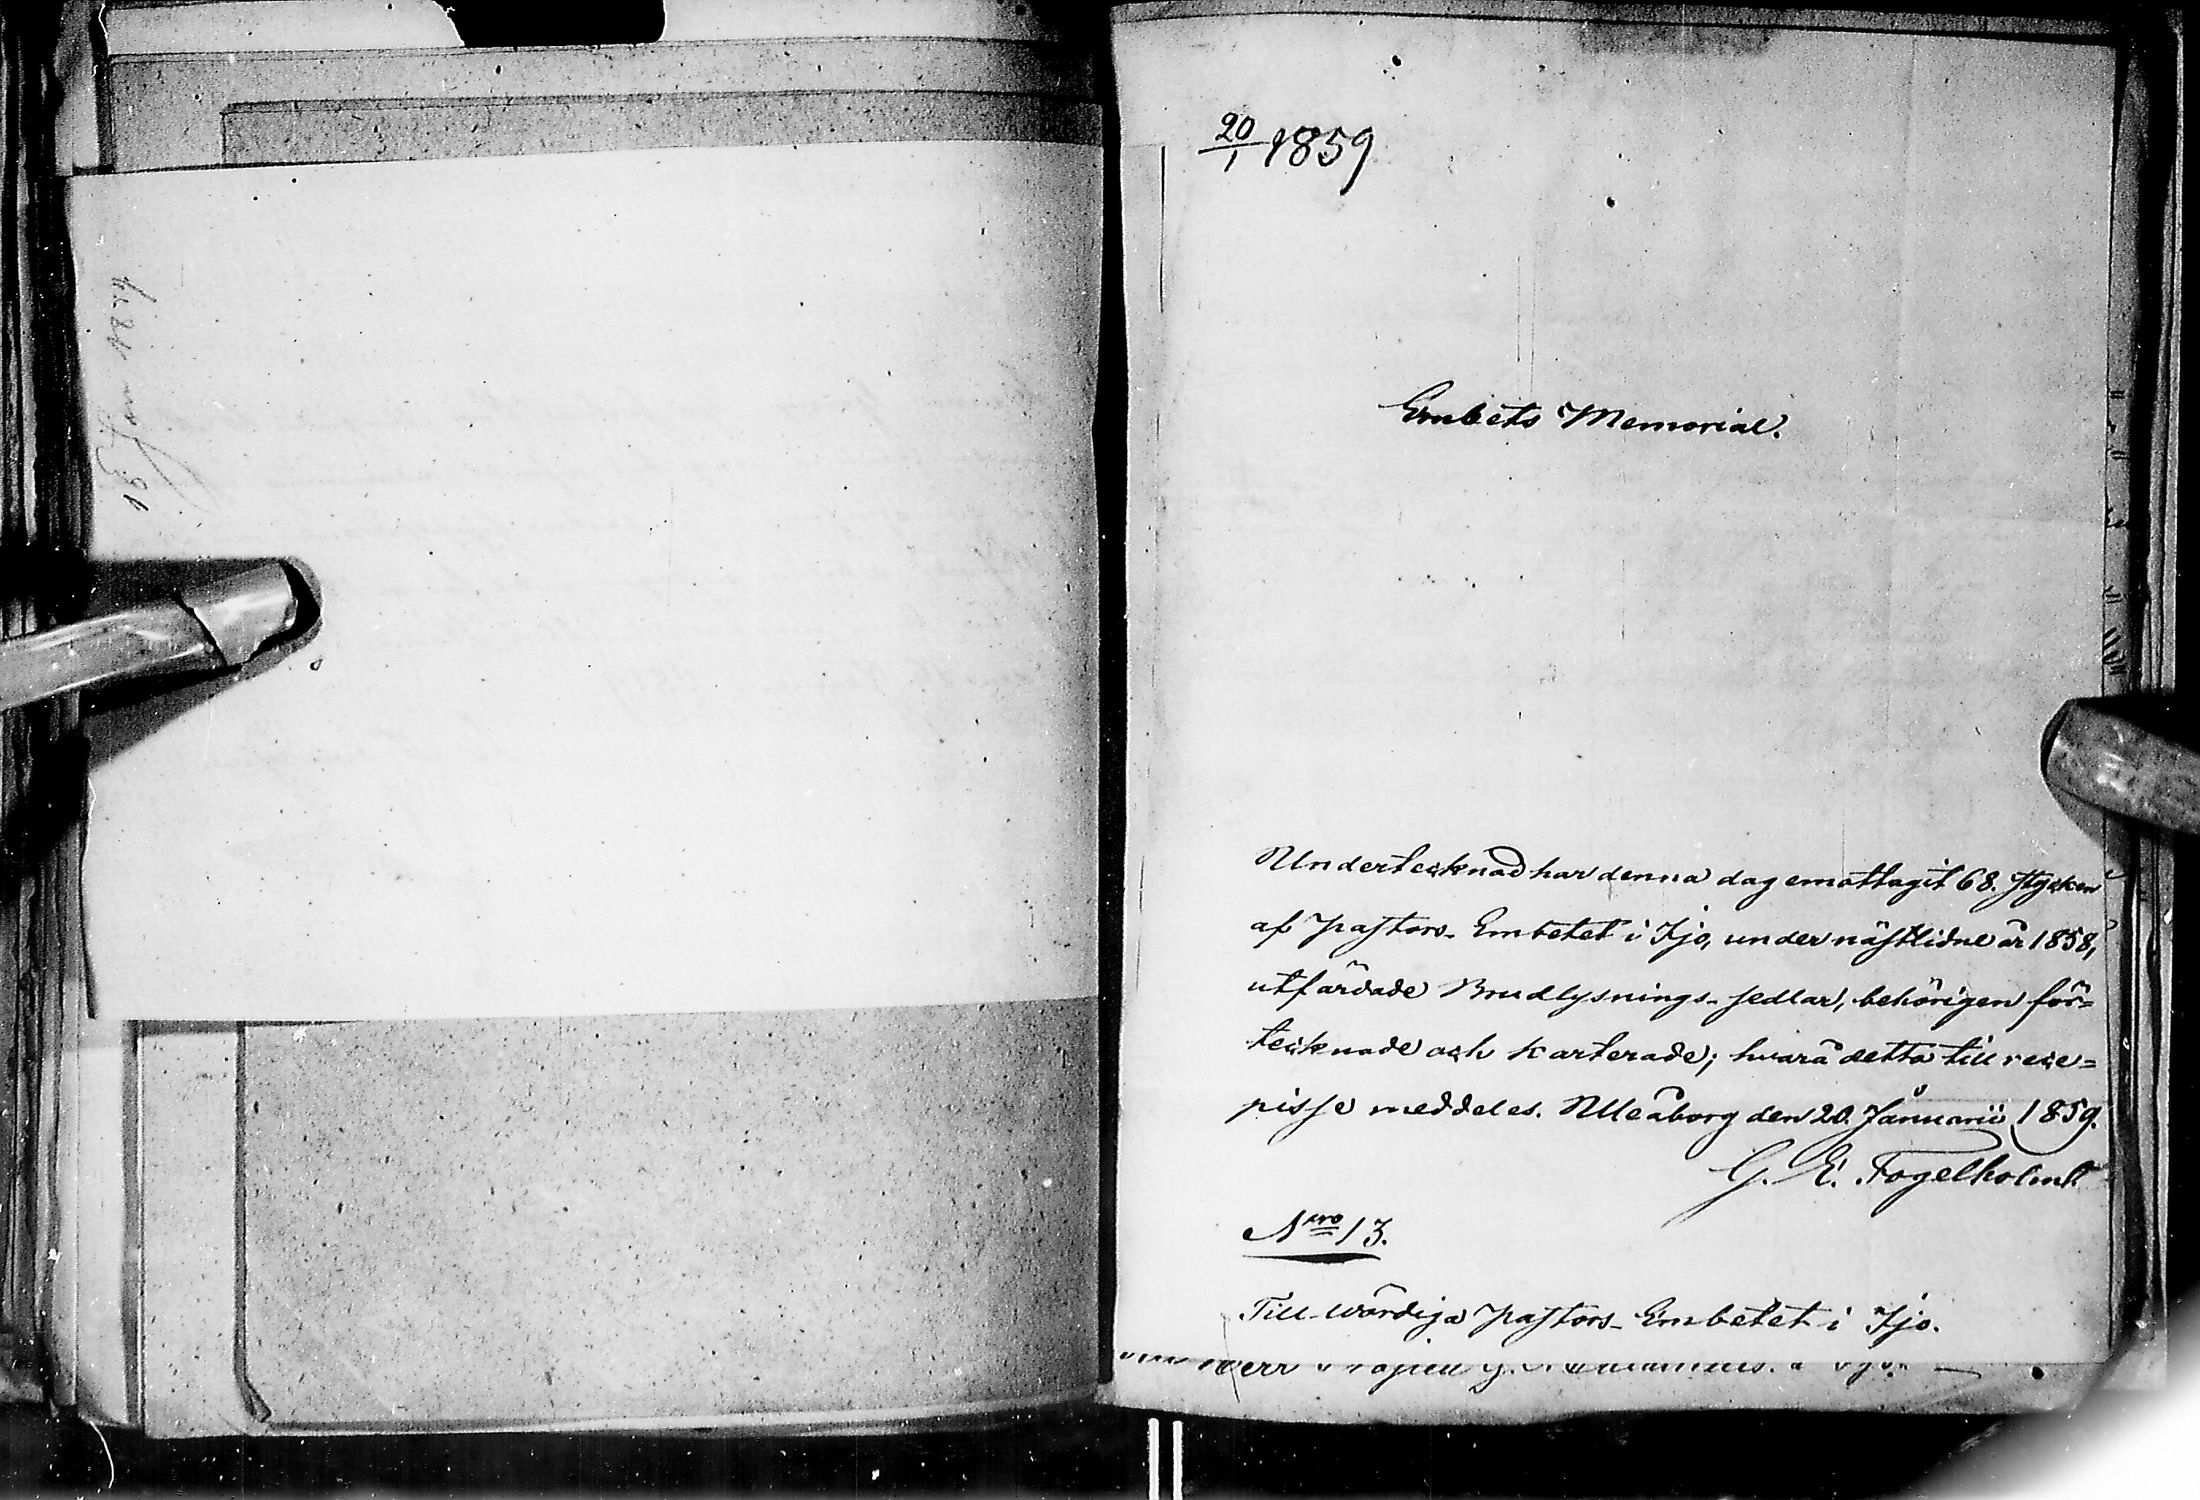 20/1 1859
Embets Memorial.
Undertecknad har denna dag emottagit 68. stycken
af Pastors-Embetet i Ijo, under nästlidne år 1858,
utfärdade Brudlysnings-sedlar, behörigen för=
tecknade och karterade; hvarå detta till rece=
pisse meddeles. Uleåborg den 20. Januarii 1859.
G. E. Fogelholm
Nro 13.
Till Wördiga Pastors-Embetet i Ijo.